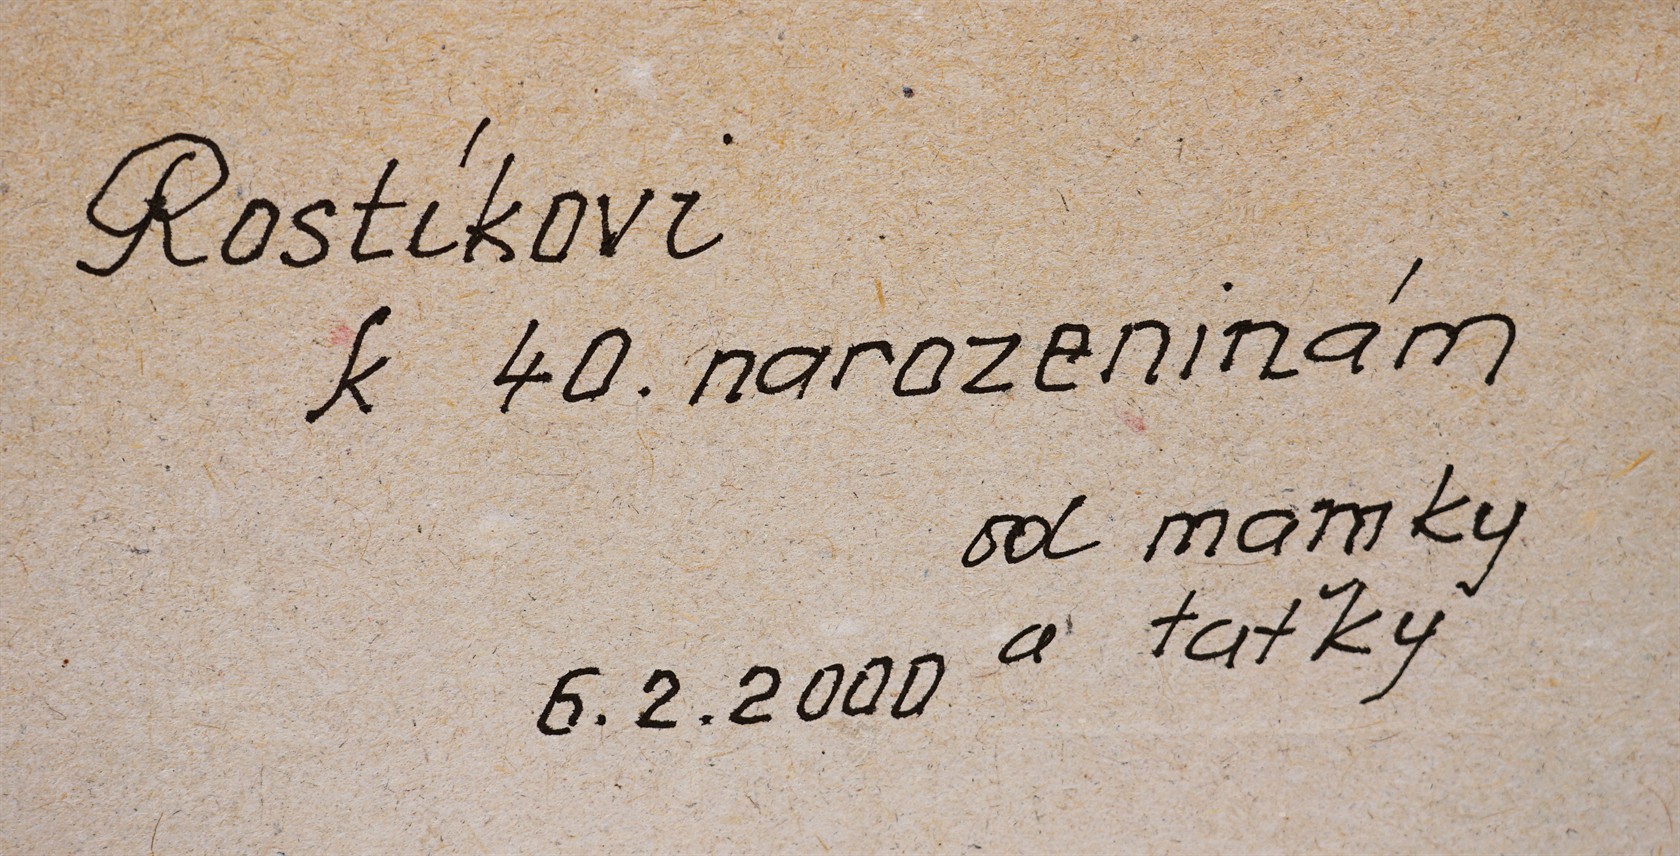 Rostíkovi
k 40. narozeninám
od mamky
a taťky
6.2.2000